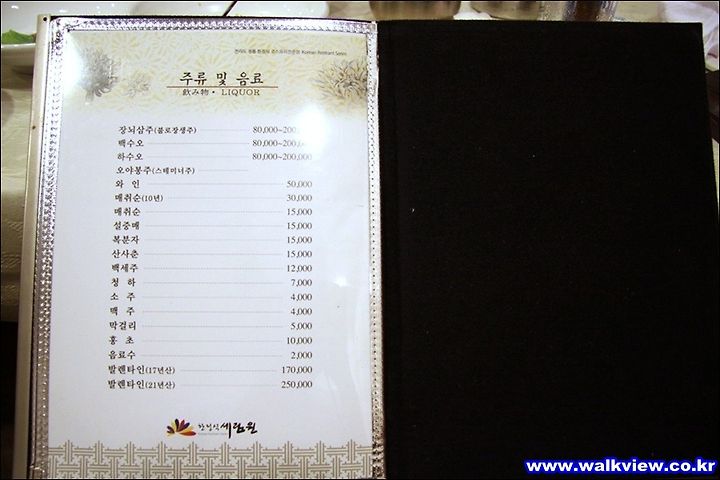 주류 및 음료
飲み物 • LIQUOR
장뇌삼주(불로장생주) 80,000~200,000
백수오 80,000~200,000
하수오 80,000~200,000
오야봉주(스테미너주)
와 인 50,000
매취순(10년) 30,000
매취순 15,000
설중매 15,000
복분자 15,000
산사춘 15,000
백세주 12,000
청 하 7,000
소 주 4,000
맥 주 4,000
막걸리 5,000
홍 초 10,000
음료수 2,000
발렌타인(17년산) 170,000
발렌타인(21년산) 250,000
한정식 세림원
www.walkview.co.kr